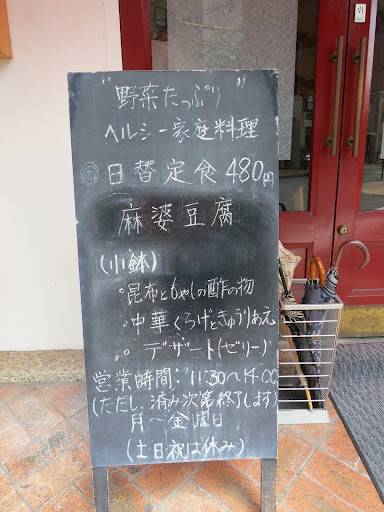 "野菜たっぷり"
ヘルシー家庭料理
◎日替定食480円
麻婆豆腐
(小鉢)
。昆布ともやしの酢の物
。中華くらげときゅうりあえ
。デザート(ゼリー)
営業時間:11:30〜14:00
(ただし、済み次第終了します)
月〜金曜日
(土日祝は休み)